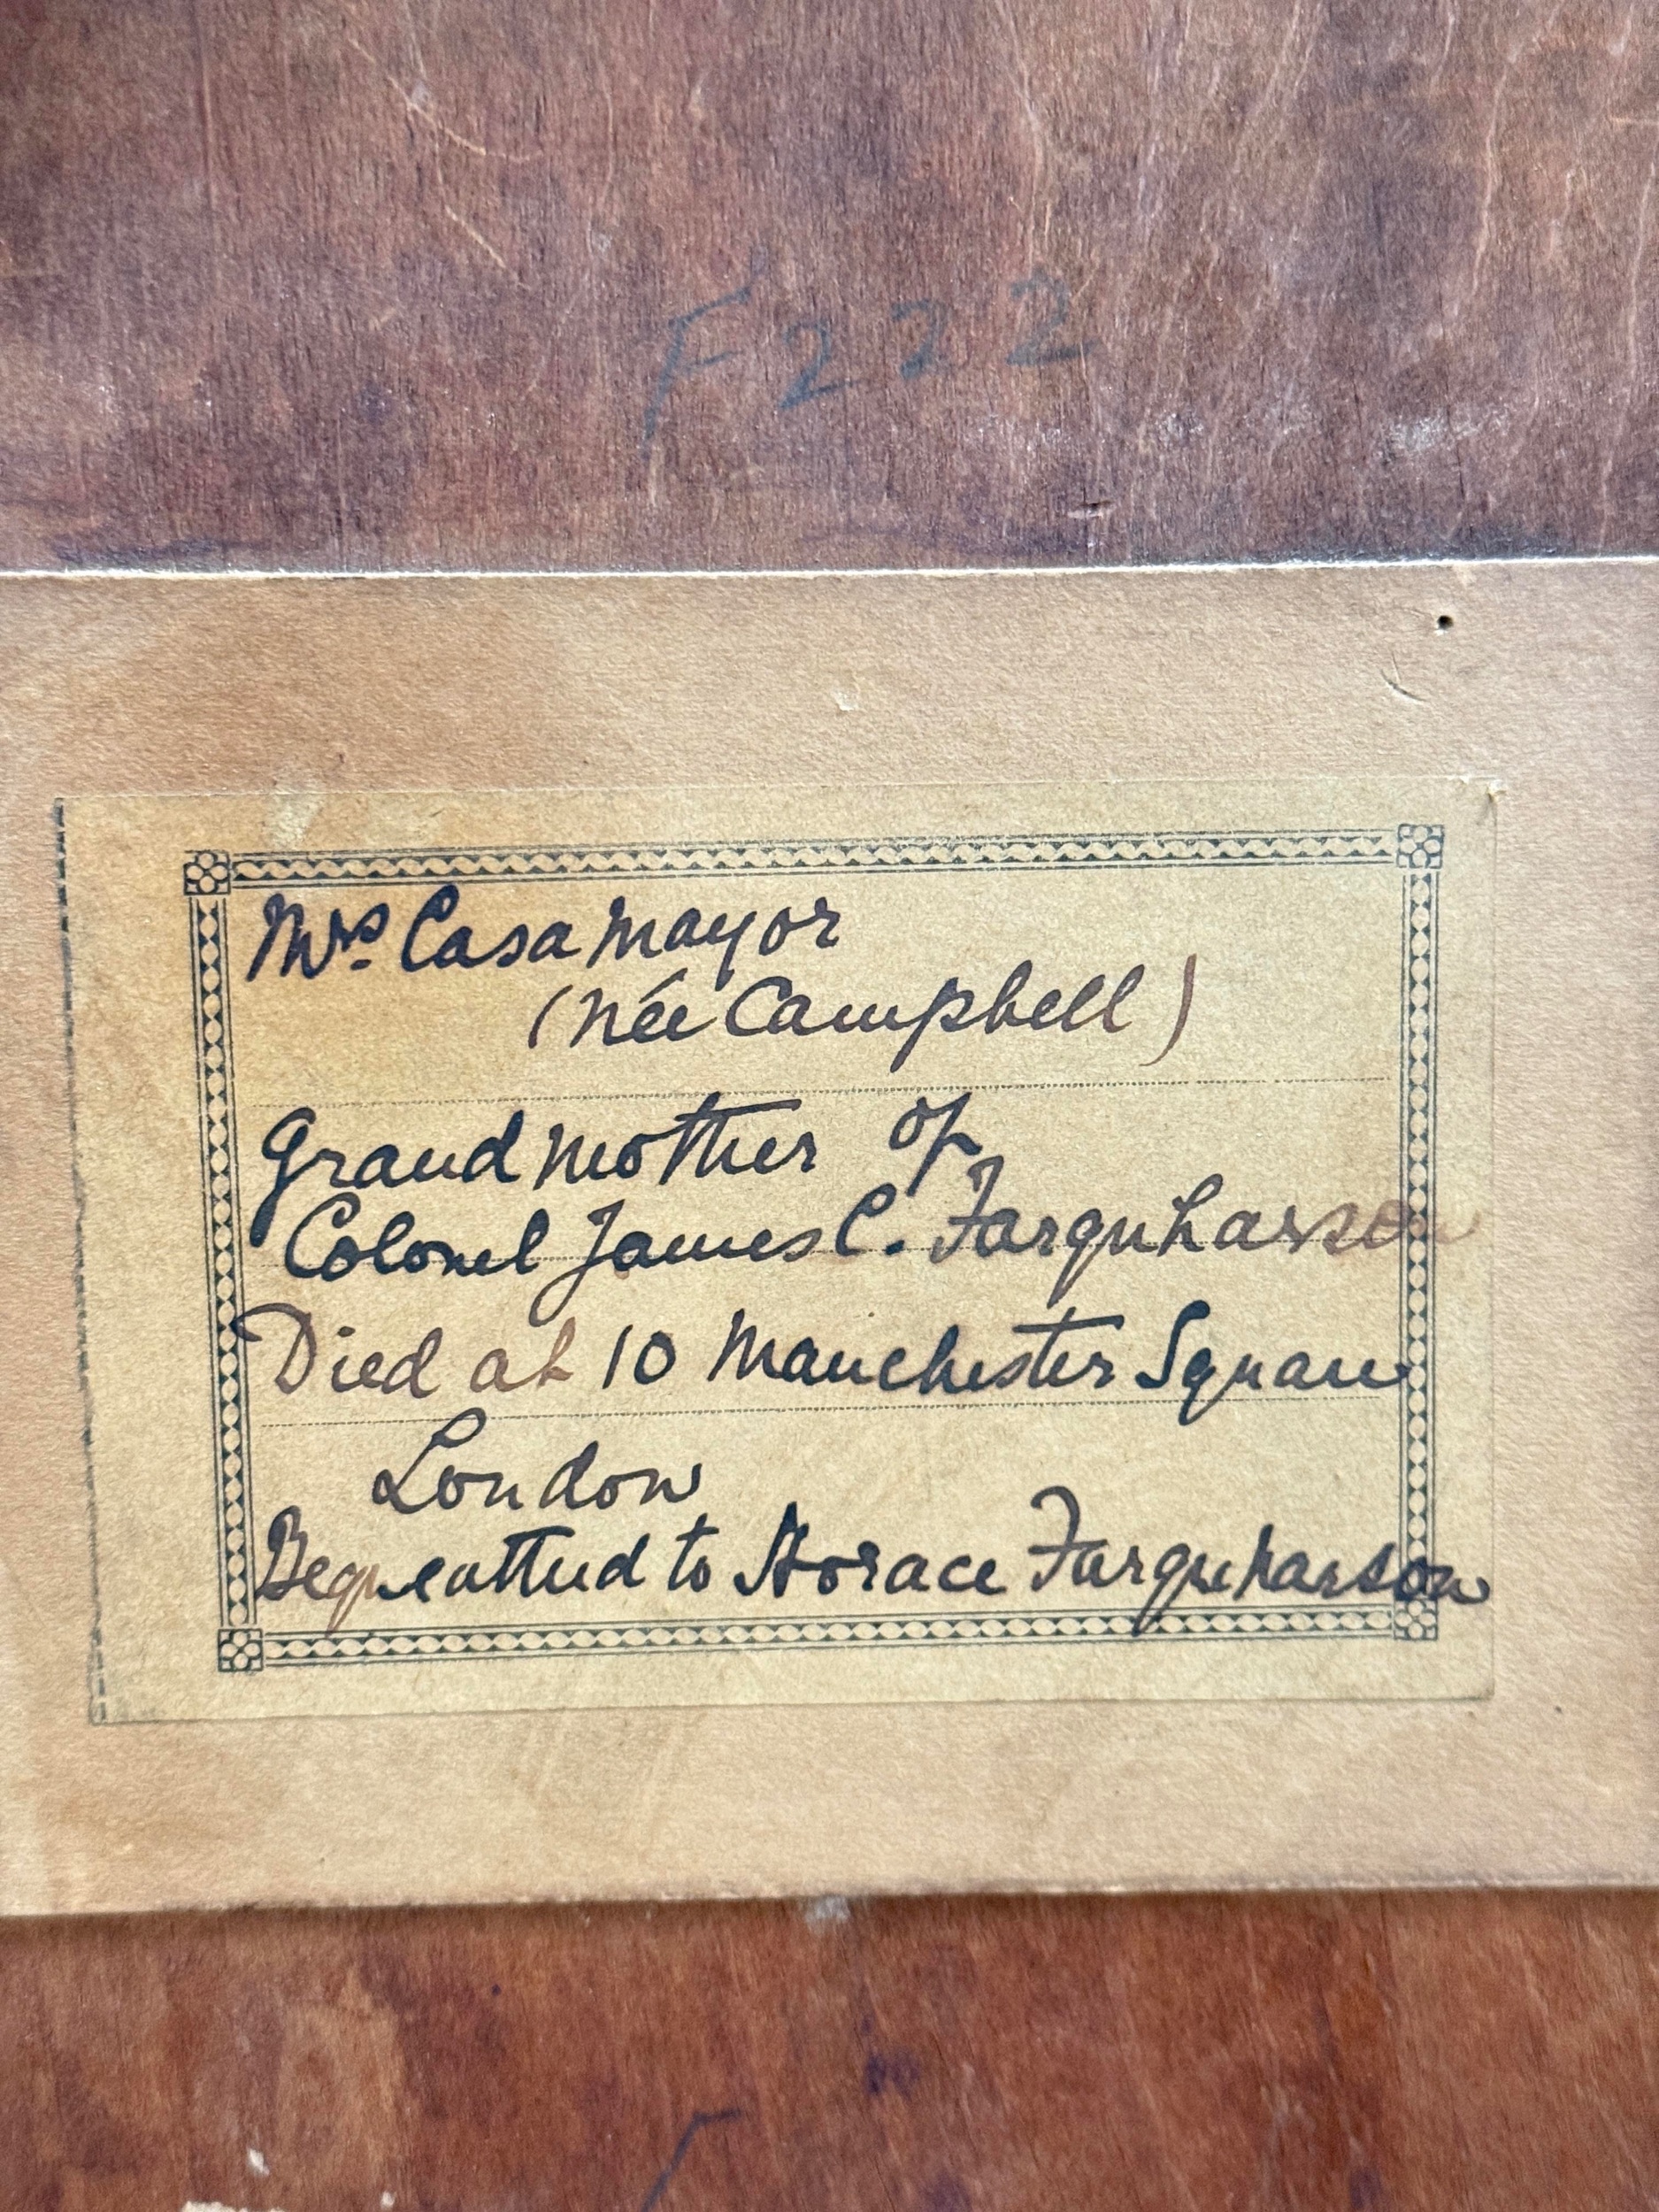 F222
Mrs Casamayor
(née Campbell)
Grandmother of
Colonel James C. Farquharson
Died at 10 Manchester Square
London
Bequeathed to Horace Farquharson